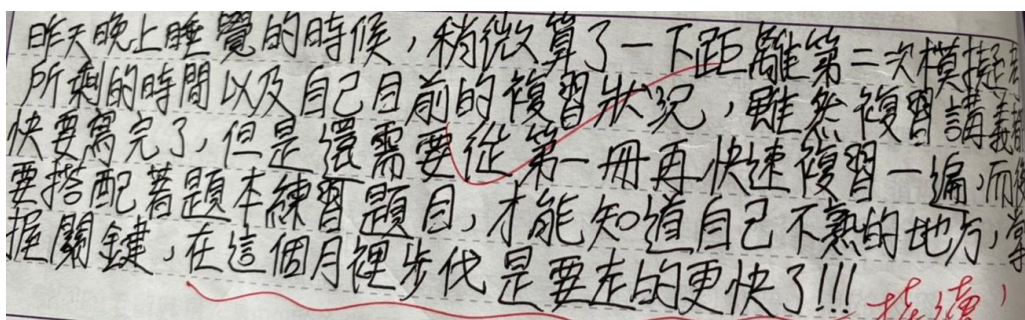 昨天晚上睡覺的時候，稍微算了一下距離第二次模擬考
所剩的時間以及自己目前的複習狀況，雖然複習講義都
快要寫完了，但是還需要從第一冊再快速複習一遍，而
要搭配著題本練習題目，才能知道自己不熟的地方，掌
握關鍵，在這個月裡步伐是要走的更快了!!!